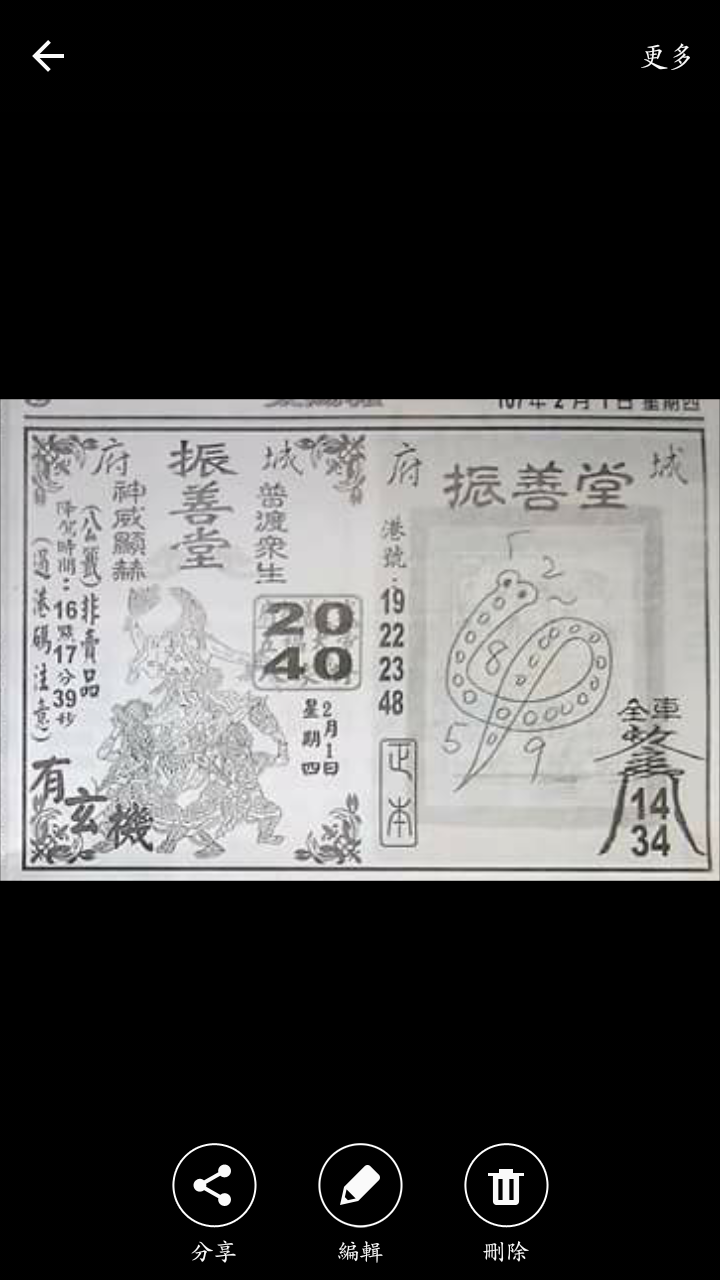 更多
107年2月1日星期四
府 振善堂 城
普渡眾生
神威顯赫
20
40
2月1日
星期四
(公籤)非賣品
降駕時間：16點17分39秒
(逼港碼注意)
有玄機
府 振善堂 城
港號：
19
22
23
48
正本
1
2
8
5
9
全車
14
34
分享
編輯
刪除